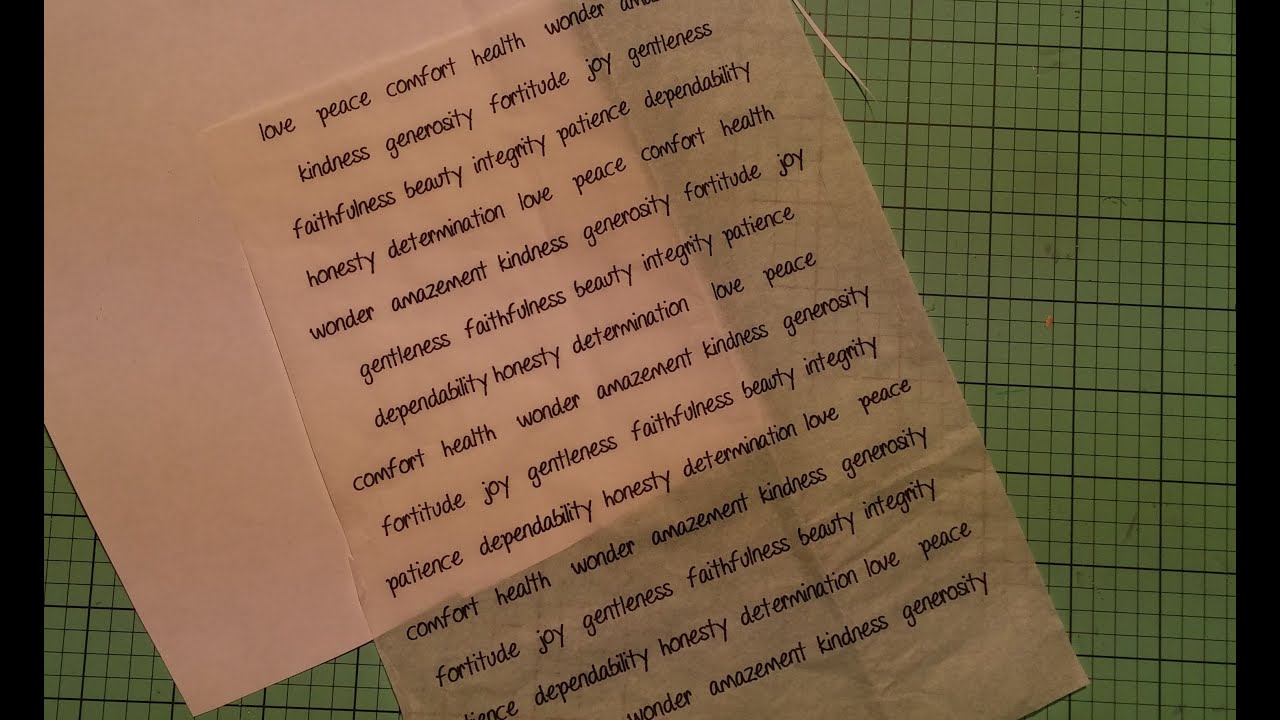 love peace comfort health wonder
kindness generosity fortitude joy gentleness
faithfulness beauty integrity patience dependability
honesty determination love peace comfort health
wonder amazement kindness generosity fortitude joy
gentleness faithfulness beauty integrity patience
dependability honesty determination love peace
comfort health wonder amazement kindness generosity
fortitude joy gentleness faithfulness beauty integrity
patience dependability honesty determination love peace
comfort health wonder amazement kindness generosity
fortitude joy gentleness faithfulness beauty integrity
dependability honesty determination love peace
wonder amazement kindness generosity